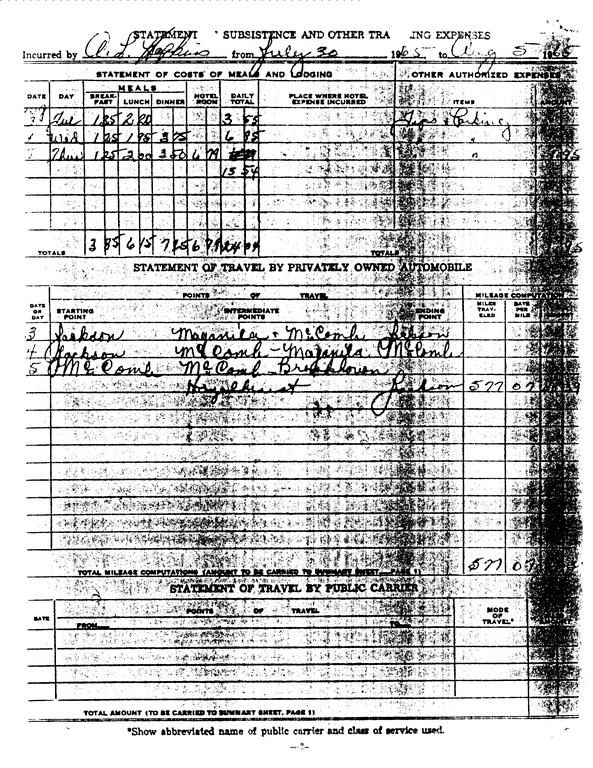 STATEMENT SUBSISTENCE AND OTHER TRA ING EXPENSES
Incurred by A. L. Hopkins from July 30 1965 to Aug 5 1965
STATEMENT OF COSTS OF MEALS AND LODGING OTHER AUTHORIZED EXPENSES
MEALS
DATE DAY BREAK-FAST LUNCH DINNER HOTEL ROOM DAILY TOTAL PLACE WHERE HOTEL EXPENSE INCURRED ITEMS AMOUNT
3 Tue 1 35 2 20 3 55 Parking
4 Wed 1 25 1 95 3 75 6 95
5 Thur 1 25 2 00 3 50 6 79 "
13 54
TOTALS 3 85 6 15 7 25 6 79 24 04 TOTALS
STATEMENT OF TRAVEL BY PRIVATELY OWNED AUTOMOBILE
POINTS OF TRAVEL MILEAGE COMPUTATION
DATE OR DAY STARTING POINT INTERMEDIATE POINTS ENDING POINT MILES TRAV-ELED RATE PER MILE
3 Jackson Magnolia + McComb
4 Jackson McComb - Magnolia McComb
5 McComb McComb - Brookhaven
Hazelhurst Jackson 577 07
TOTAL MILEAGE COMPUTATIONS (AMOUNT TO BE CARRIED TO SUMMARY SHEET, PAGE 1) 577 07
STATEMENT OF TRAVEL BY PUBLIC CARRIER
DATE POINTS OF TRAVEL MODE OF TRAVEL*
FROM TO
TOTAL AMOUNT (TO BE CARRIED TO SUMMARY SHEET, PAGE 1)
*Show abbreviated name of public carrier and class of service used.
—2—